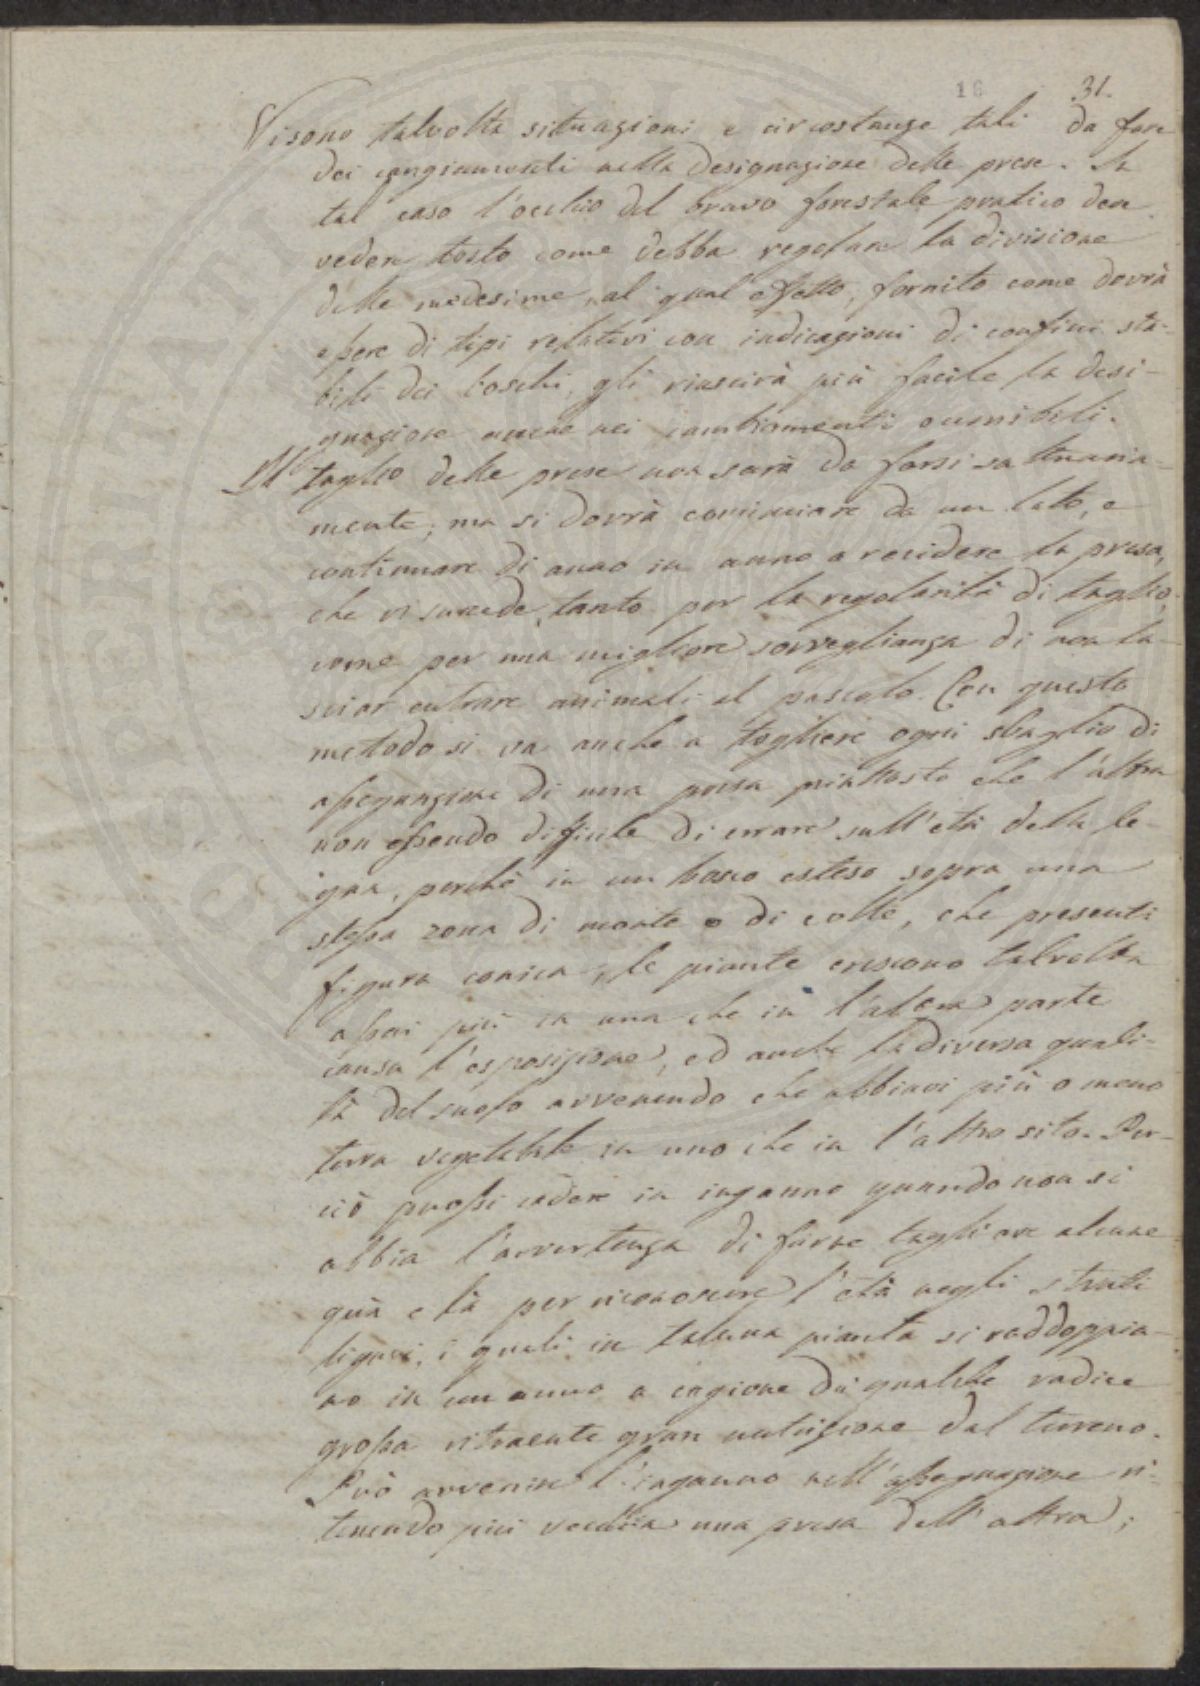 16 31.
Vi sono talvolta situazioni e circostanze tali da fare
dei cangiamenti nella designazione delle prese. In
tal caso l'occhio del bravo forestale pratico deve
vedere tosto come debba regolare la divisione
delle medesime, al qual effetto, fornito come dovrà
essere di tipi relativi con indicazioni di confini sta-
bili dei boschi, gli riuscirà più facile la desi-
gnazione anche nei cambiamenti
Il taglio delle prese non sarà da farsi saltuaria-
mente, ma si dovrà cominciare da un lato, e
continuare di anno in anno a recidere la presa,
che vi succede, tanto per la regolarità di taglio,
come per una migliore sorveglianza di non la-
sciar entrare animali al pascolo. Con questo
metodo si va anche a togliere ogni sbaglio di
assegnazione di una presa piuttosto che l'altra
non essendo difficile di errare sull'età della le-
gna, perchè in un bosco esteso sopra una
stessa zona di monte o di colle, che presenti
figura conica, le piante crescono talvolta
assai più in una che in l'altra parte
causa l'esposizione, ed anche la diversa quali-
tà del suolo avvenendo che abbiavi più o meno
terra vegetale in uno che in l'altro sito. Per-
ciò puossi cadere in inganno quando non si
abbia l'avvertenza di farne tagliare alcune
quà e là per riconoscere l'età negli strati
lignei, i quali in taluna pianta si raddoppia-
no in un anno a cagione di qualche radice
grossa ritraente gran nutrizione dal terreno.
Può avvenire l'inganno nell'assegnazione ri-
tenendo più vecchia una presa dell'altra;